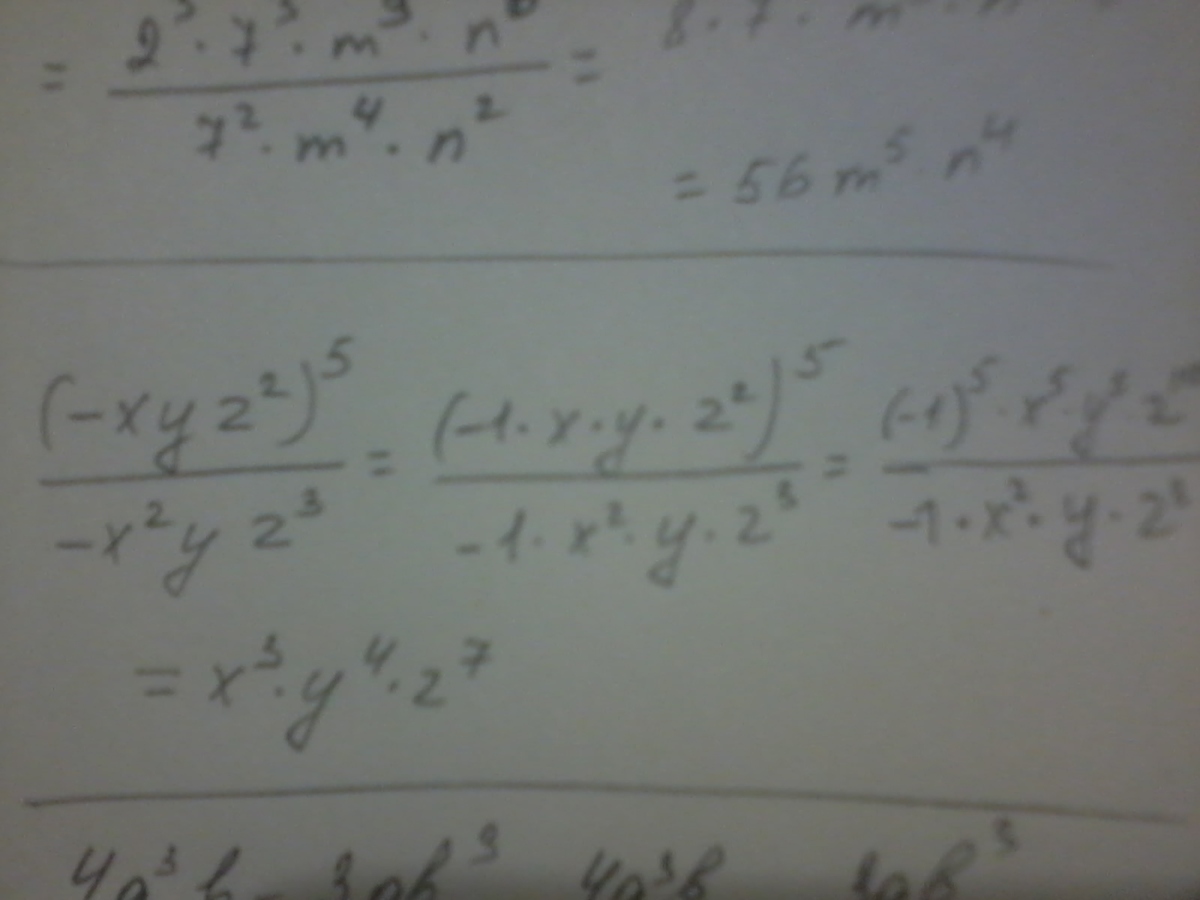 = (2³ · 7³ · m⁹ · n⁶) / (7² · m⁴ · n²) =
= 56 m⁵ · n⁴
(-xyz²)⁵ / (-x²yz³) = (-1·x·y·z²)⁵ / (-1·x²·y·z³) = ((-1)⁵·x⁵·y⁵·z¹⁰) / (-1·x²·y·z³)
= x³·y⁴·z⁷
4a³b - 3ab³ 4a³b 3ab³